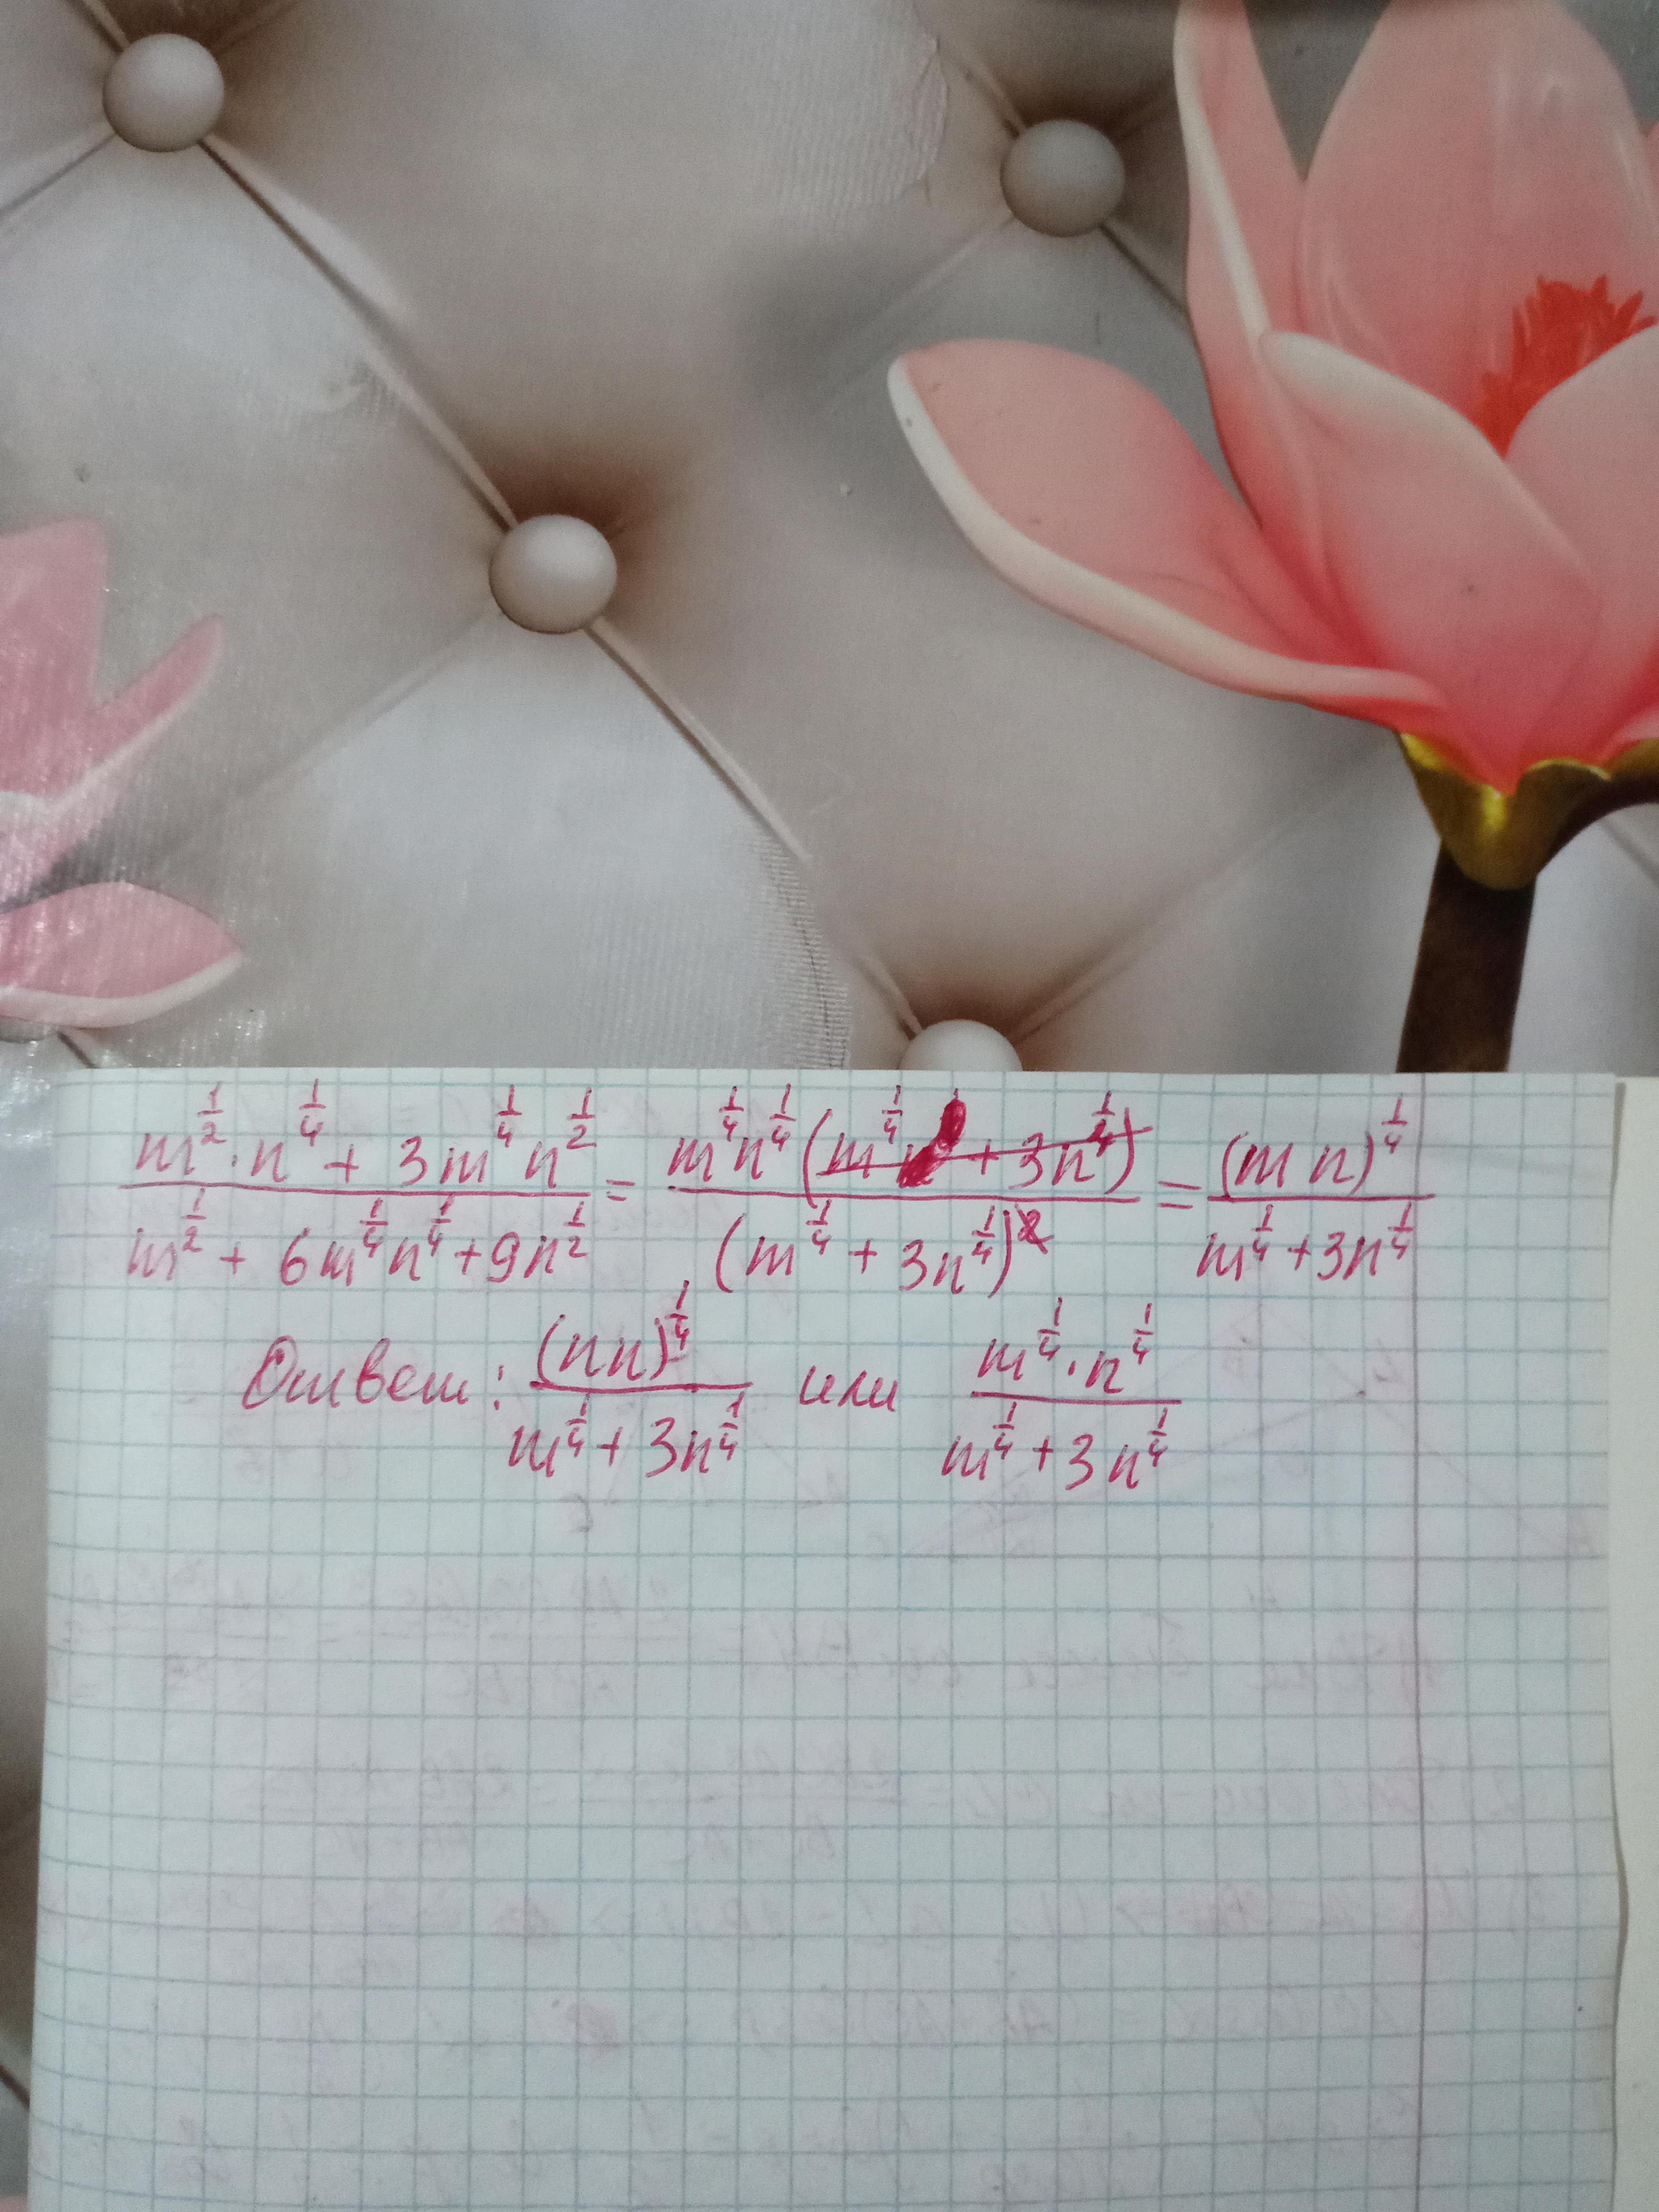 (m^(1/2)·n^(1/4) + 3m^(1/4)n^(1/2))/(m^(1/2) + 6m^(1/4)n^(1/4) + 9n^(1/2)) = (m^(1/4)n^(1/4)(m^(1/4) + 3n^(1/4)))/((m^(1/4) + 3n^(1/4))^2) = ((mn)^(1/4))/(m^(1/4) + 3n^(1/4))
Ответ: ((nn)^(1/4))/(m^(1/4) + 3n^(1/4)) или (m^(1/4)·n^(1/4))/(m^(1/4) + 3n^(1/4))